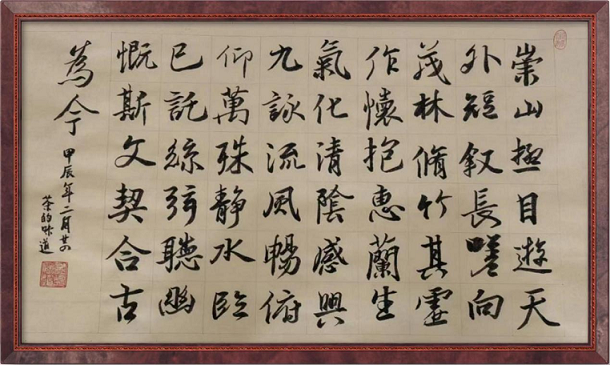 崇山極目遊天
外短叙長嗟向
茂林脩竹其虚
作懷抱惠蘭生
氣化清陰感興
九詠流風暢俯
仰萬殊静水臨
已託絲弦聽幽
慨斯文契合古
為今
甲辰年二月廿四
茶的味道